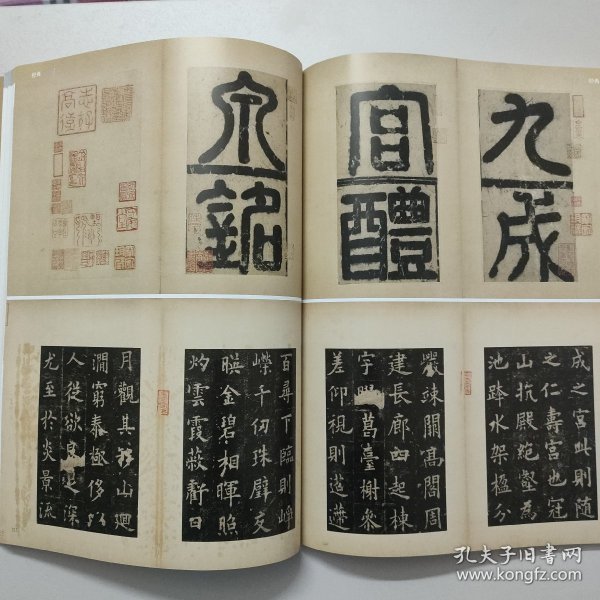 九成
宫醴
泉銘
成之宫此則随
之仁壽宫也冠
山抗殿絶壑為
池跨水架楹分
巖竦闕髙閣周
建長廊四起棟
宇膠葛臺榭參
差仰視則迢遰
百尋下臨則峥
嶸千仞珠璧交
暎金碧相暉照
灼雲霞蔽虧日
月觀其移山迴
澗窮泰極侈以
人從欲良足深
尤至於炎景流
孔夫子旧书网
www.kongfz.com